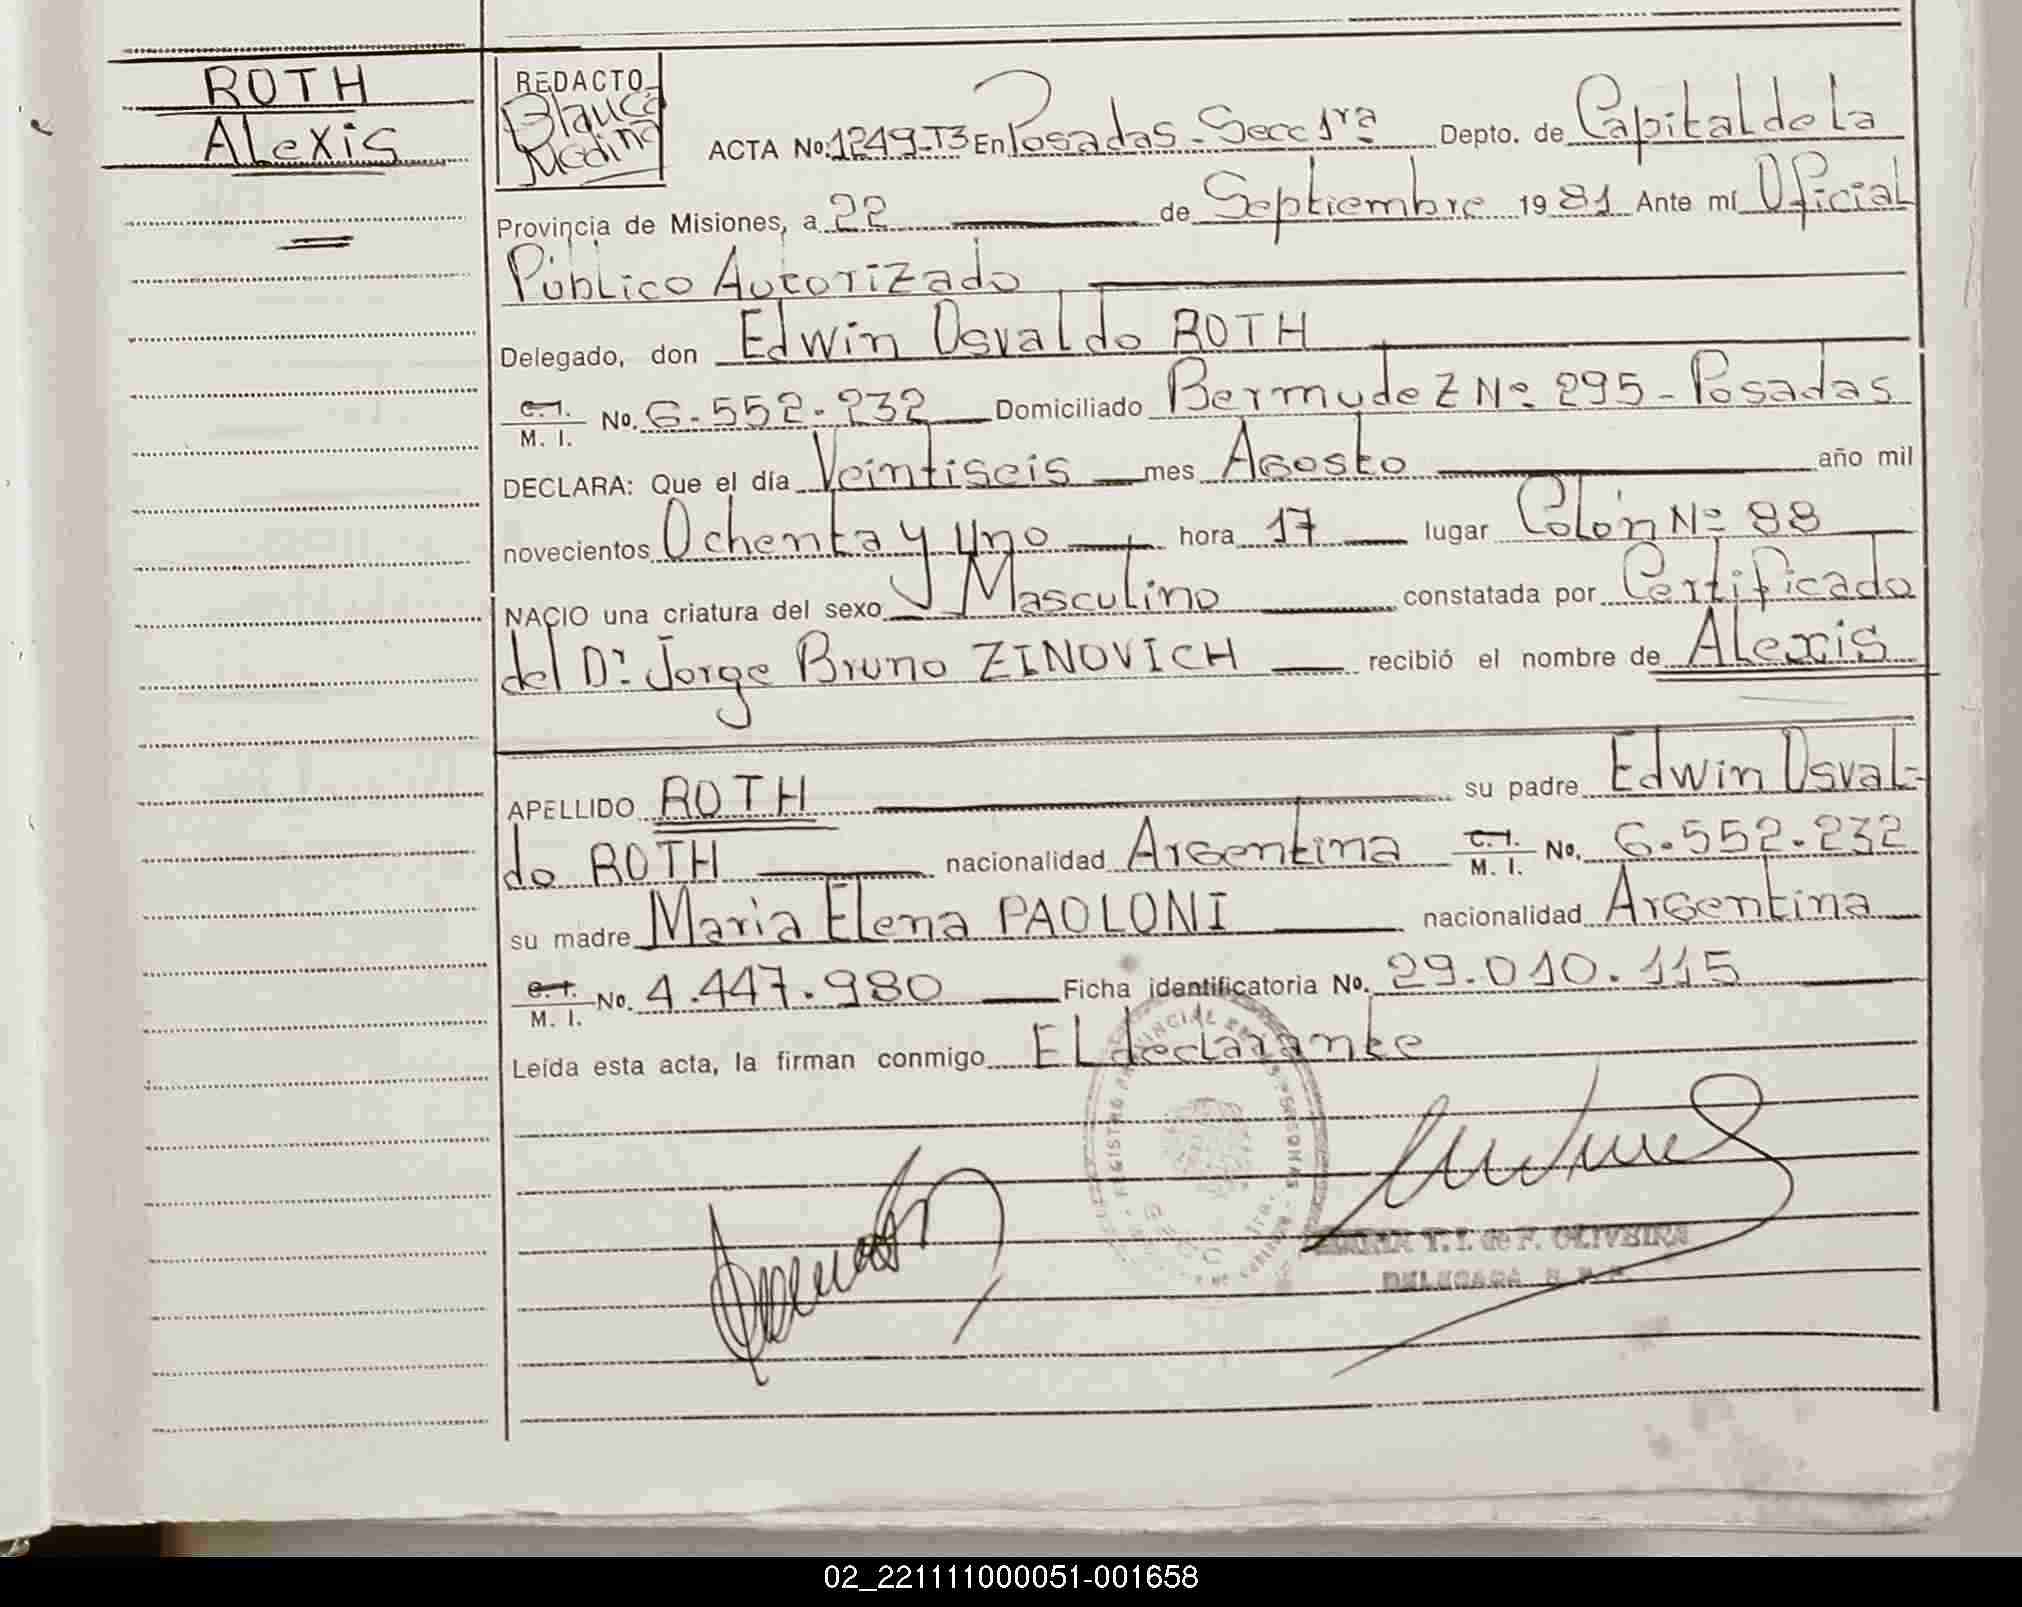 ROTH
Alexis
REDACTO
Blanca
Medina
ACTA No. 1249-T3 En Posadas - Secc 1ra Depto. de Capital de la
Provincia de Misiones, a 22 de Septiembre 1981 Ante mí Oficial
Público Autorizado
Delegado, don Edwin Osvaldo ROTH
C.I.
M. I. No. 6.552.232 Domiciliado Bermudez Nº 295 - Posadas
DECLARA: Que el día Veintiseis mes Agosto año mil
novecientos Ochenta y Uno hora 17 lugar Colón Nº 88
NACIO una criatura del sexo Masculino constatada por Certificado
del Dr. Jorge Bruno ZINOVICH recibió el nombre de Alexis
APELLIDO ROTH su padre Edwin Osval-
do ROTH nacionalidad Argentina C.I. M. I. No. 6.552.232
su madre Maria Elena PAOLONI nacionalidad Argentina
C.I.
M. I. No. 4.447.980 Ficha identificatoria No. 29.010.115
Leída esta acta, la firman conmigo El declarante
MARIA T. I. de F. OLIVEIRA
DELEGADA
02_221111000051-001658